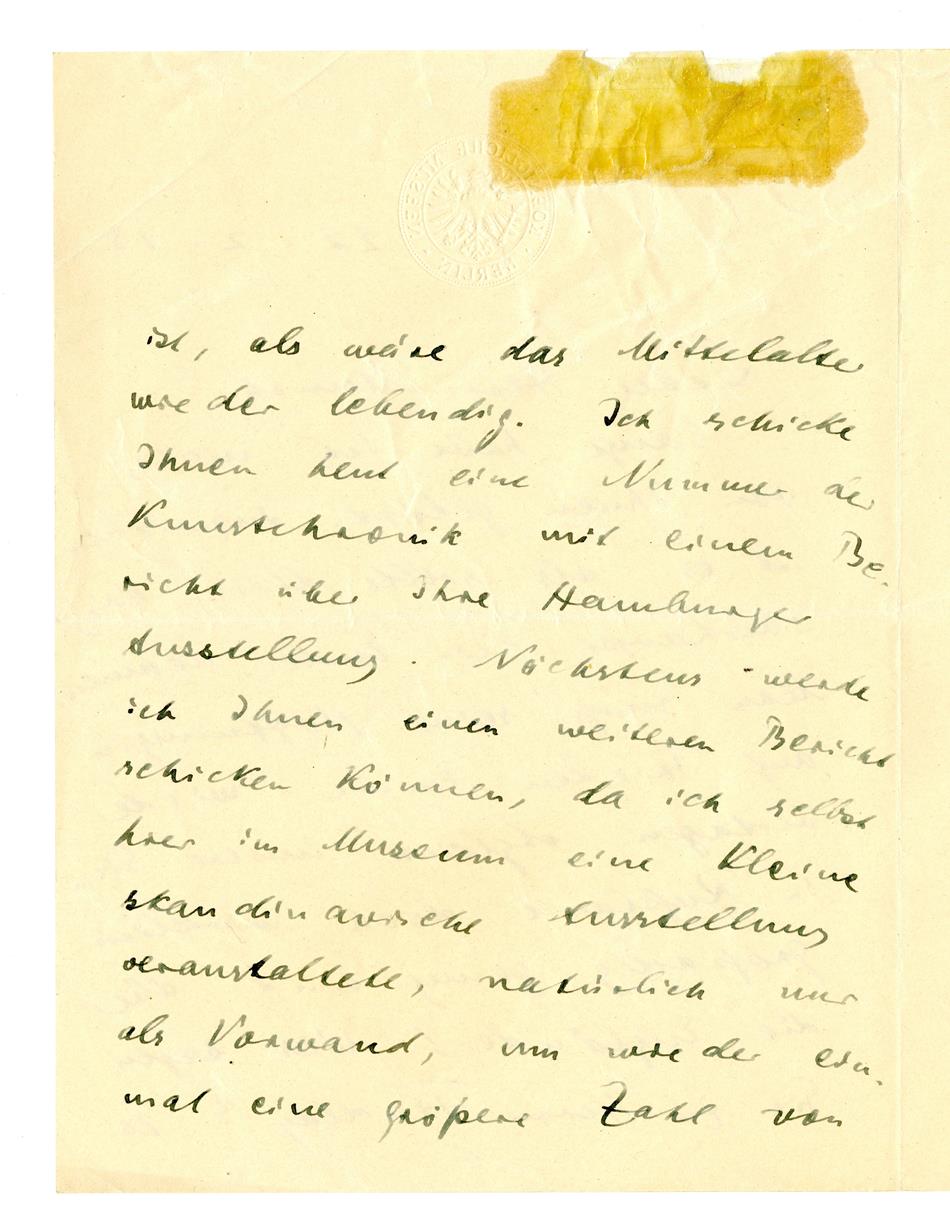 ist, als wäre das Mittelalter
wieder lebendig. Ich schicke
Ihnen heut eine Nummer der
Kunstchronik mit einem Be-
richt über Ihre Hamburger
Ausstellung. Nächstens werde
ich Ihnen einen weiteren Bericht
schicken können, da ich selbst
hier im Museum eine kleine
skandinavische Ausstellung
veranstaltete, natürlich nur
als Vorwand, um wieder ein-
mal eine größere Zahl von